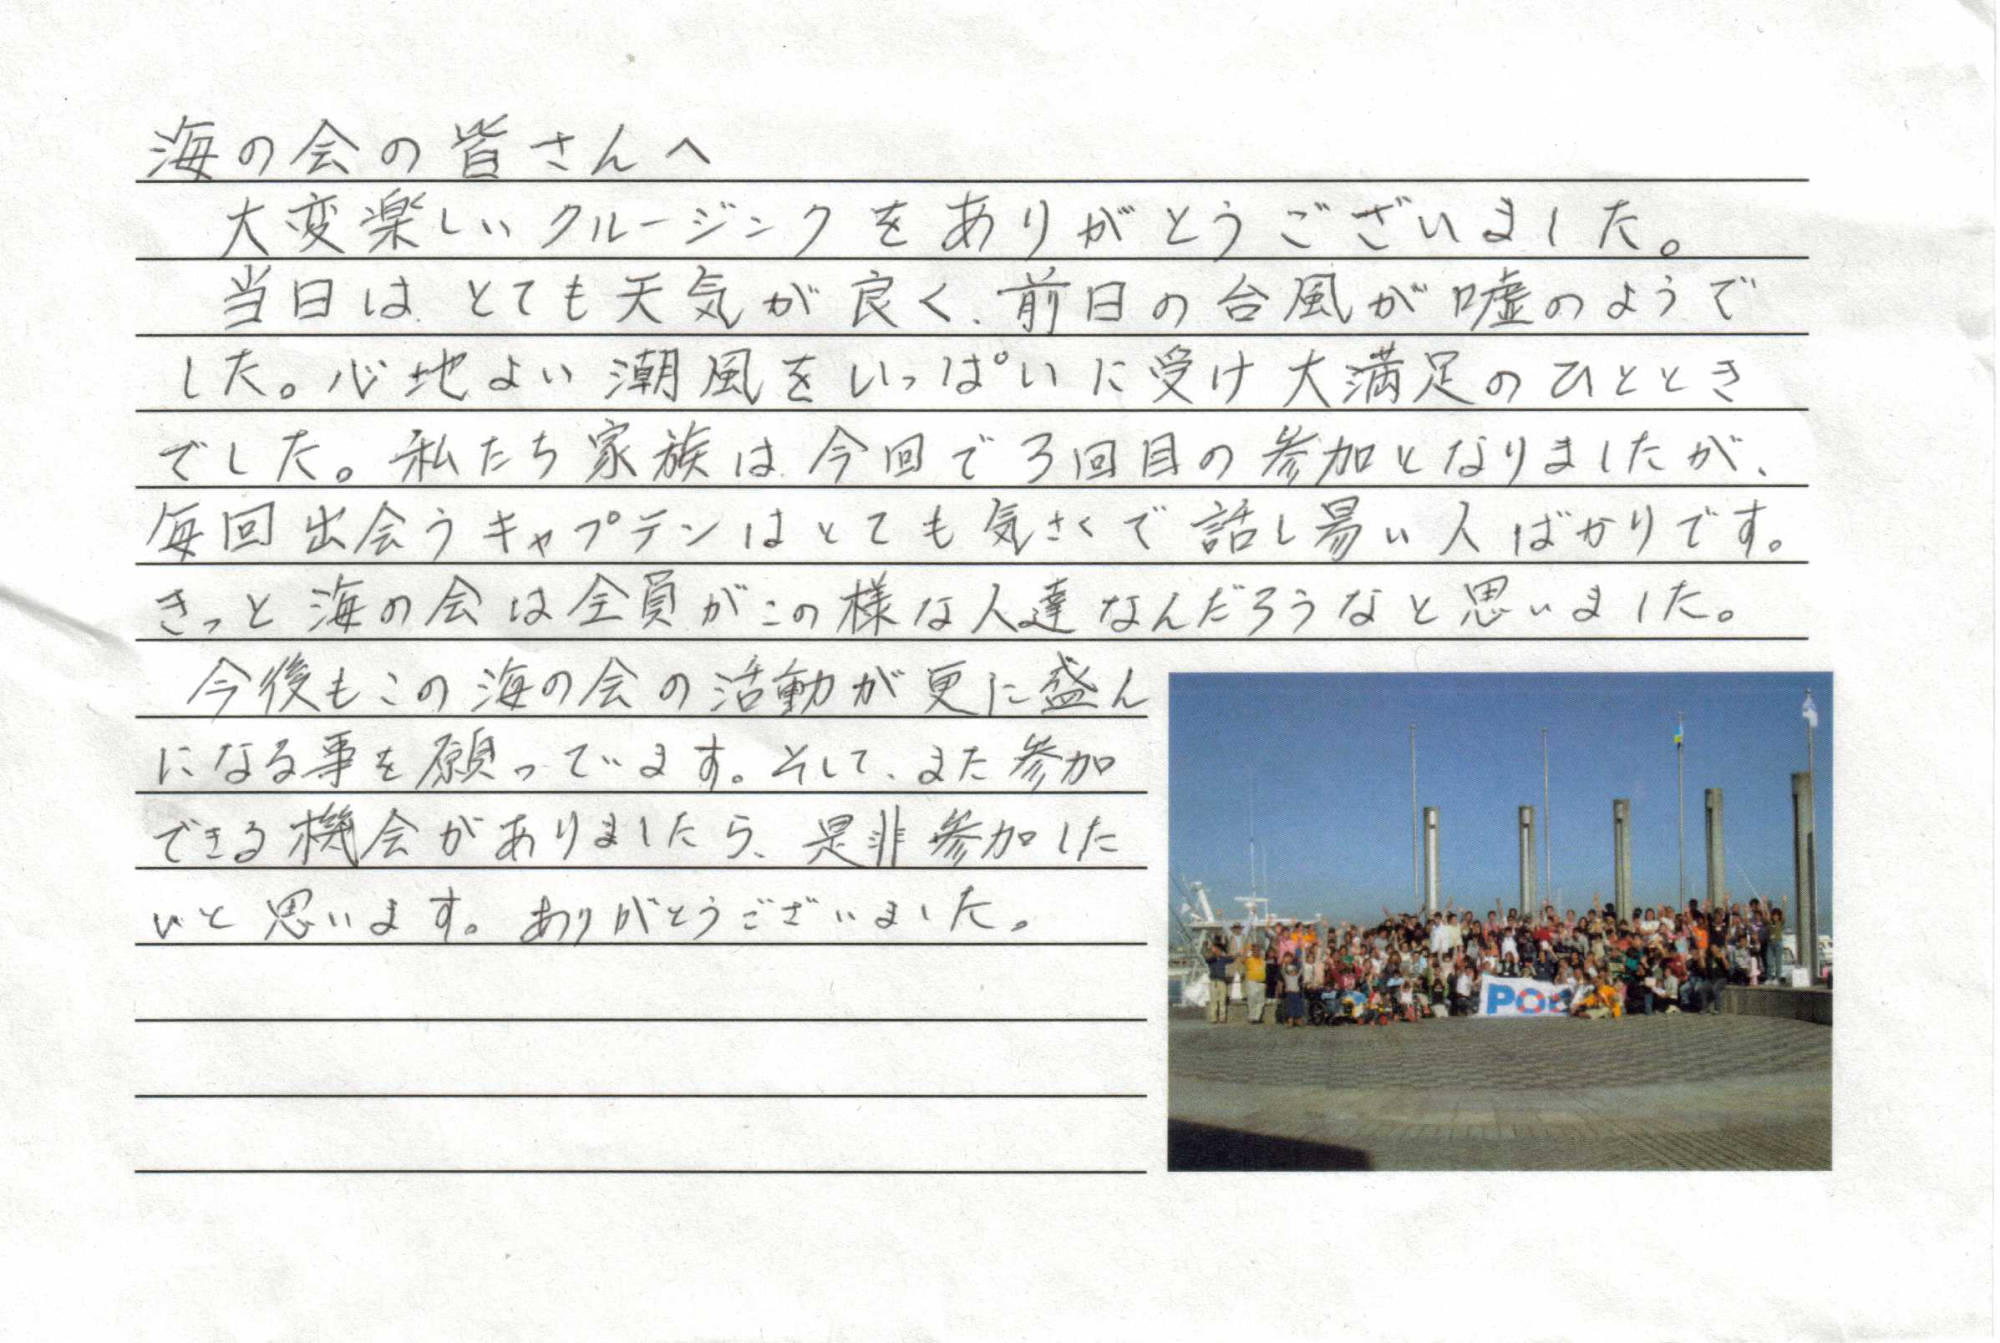 海の会の皆さんへ
大変楽しいクルージンクをありがとうございました。
当日は、とても天気が良く、前日の台風が嘘のようで
した。心地よい潮風をいっぱいに受け大満足のひととき
でした。私たち家族は、今回で3回目の参加となりましたが、
毎回出会うキャプテンはとても気さくで話し易い人ばかりです。
きっと海の会は全員がこの様な人達なんだろうなと思いました。
今後もこの海の会の活動が更に盛ん
になる事を願っています。そして、また参加
できる機会がありましたら、是非参加した
いと思います。ありがとうございました。